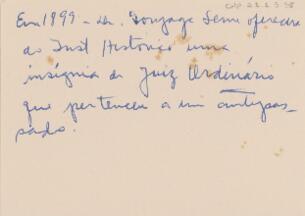 Em 1899 - Dr. Gonzaga Leme oferece
ao Inst Historico uma
insígnia de Juiz Ordinário
que pertenceu a um antepas-
sado.